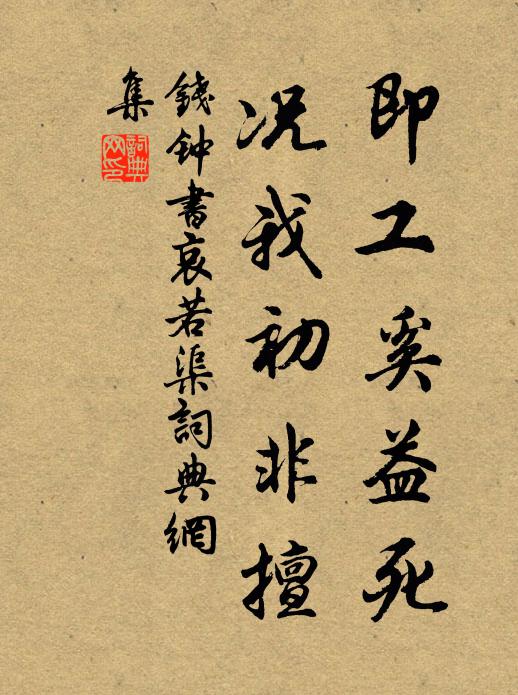 即工奚益死
况我初非擅
錢钟書哀若渠詞典網
集
詞典网印